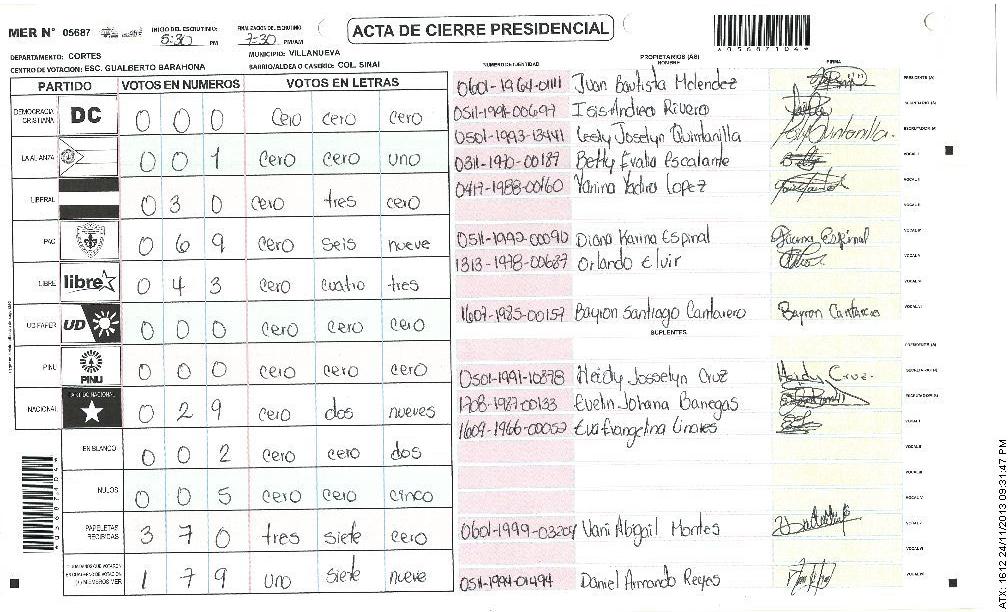 MER N° 05687
INICIO DEL ESCRUTINIO: 5:30 PM
FINALIZACION DEL ESCRUTINIO: 7:30 PM/AM
ACTA DE CIERRE PRESIDENCIAL
DEPARTAMENTO: CORTES
MUNICIPIO: VILLANUEVA
CENTRO DE VOTACION: ESC. GUALBERTO BARAHONA
BARRIO/ALDEA O CASERIO: COL. SINAI
PARTIDO VOTOS EN NUMEROS VOTOS EN LETRAS
DEMOCRACIA CRISTIANA DC 0 0 0 cero cero cero
LA ALIANZA 0 0 1 cero cero uno
LIBERAL 0 3 0 cero tres cero
PAC 0 6 9 cero seis nueve
LIBRE libre 0 4 3 cero cuatro tres
UD FAPER UD 0 0 0 cero cero cero
PINU PINU 0 0 0 cero cero cero
NACIONAL PARTIDO NACIONAL 0 2 9 cero dos nueves
EN BLANCO 0 0 2 cero cero dos
NULOS 0 0 5 cero cero cinco
PAPELETAS RECIBIDAS 3 7 0 tres siete cero
1 7 9 uno siete nueve
NUMERO DE IDENTIDAD
PROPIETARIOS (AS)
NOMBRE
FIRMA
0601-1964-01111 Juan Bautista Melendez PRESIDENTE (A)
0511-1991-00697 Isis Andrea Rivera SECRETARIO (A)
0501-1993-13441 Lesly Joselyn Quintanilla ESCRUTADOR (A)
0311-1970-00187 Betty Evalia Escalante VOCAL I
0417-1988-00160 Yanina Yadira Lopez VOCAL II
VOCAL III
0511-1992-00090 Diana Karina Espinal Diana Espinal VOCAL IV
1313-1978-00687 Orlando Elvir VOCAL V
1607-1985-00157 Bayron Santiago Cantarero
SUPLENTES
PRESIDENTE (A)
0501-1991-10878 Heidy Josselyn Cruz Heidy Cruz SECRETARIO (A)
1708-1987-00133 Evelin Johana Banegas ESCRUTADOR (A)
1609-1966-00052 Eva Evangelina Linares VOCAL I
VOCAL II
VOCAL III
0601-1999-03204 Vani Abigail Montes
0511-1994-01494 Daniel Armando Reyes
ATX: 1612 24/11/2013 09:31:47 PM